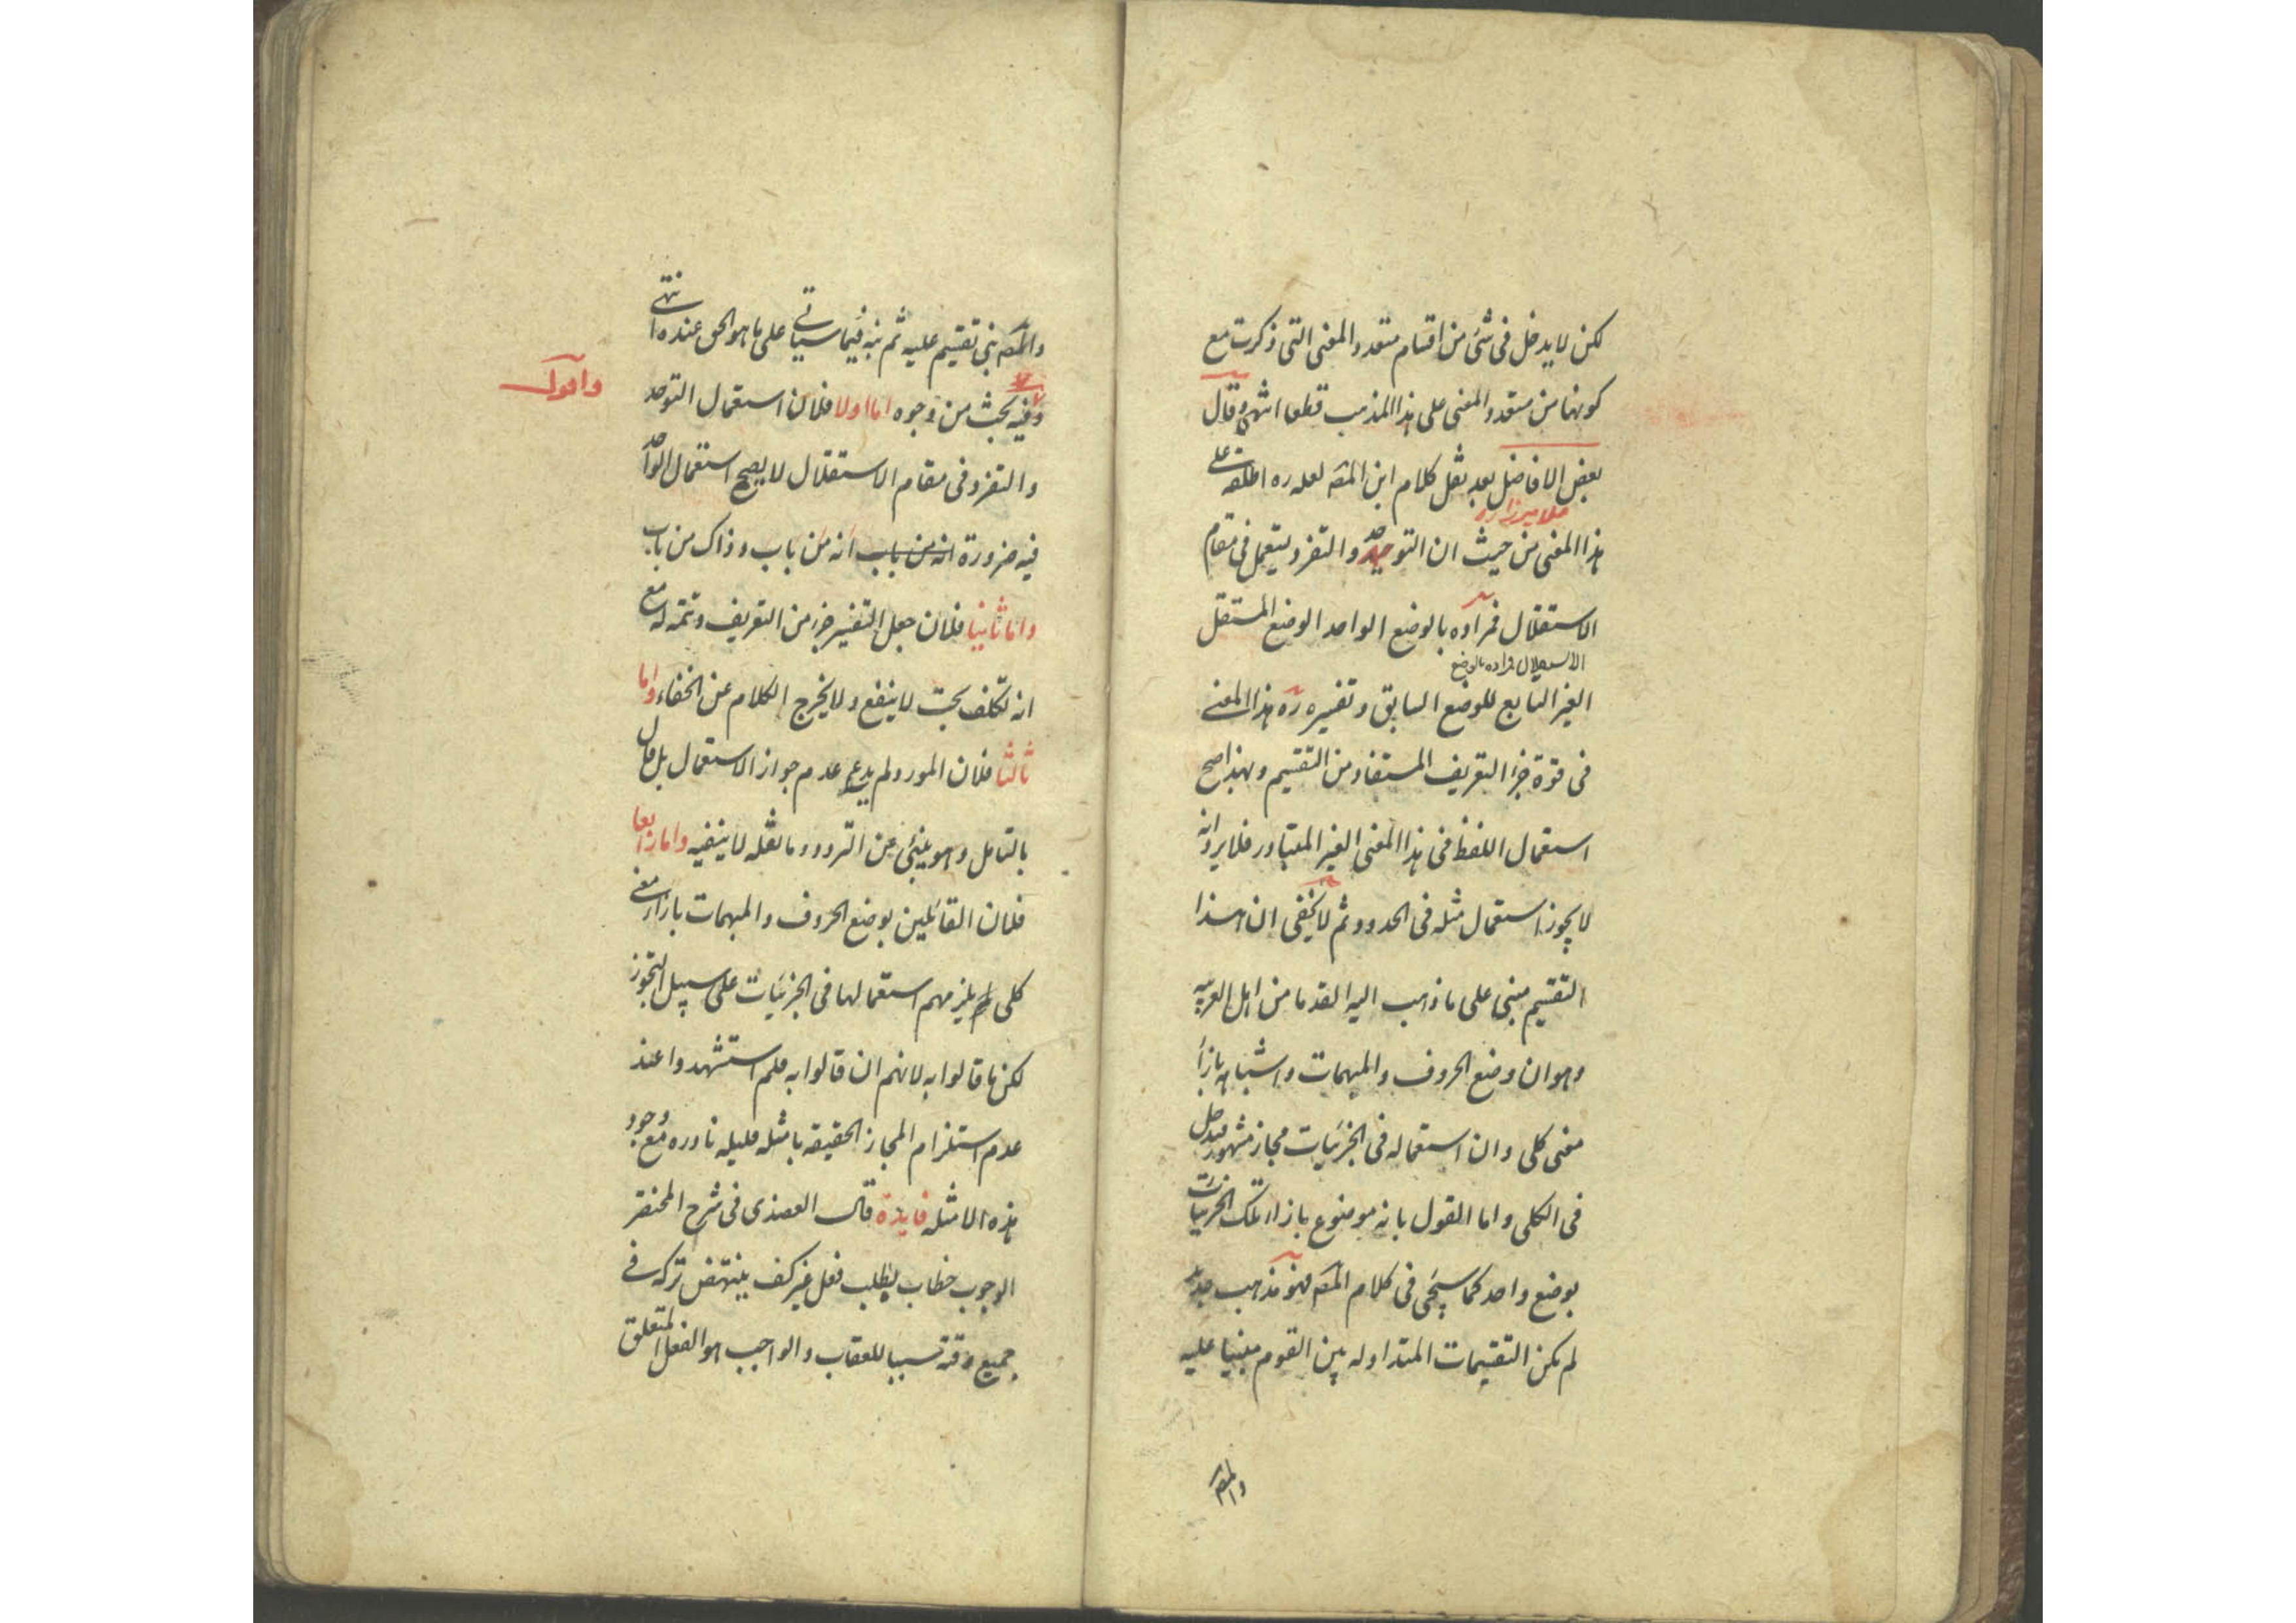 لكن لا يدخل فى شئ من اقسام متعدد المعنى التى ذكرت مع
كونها من متعدد المعنى على هذا المذهب قطعا انتهى وقال
بعض الافاضل بعد نقل كلام ابن المصه لعله ره اطلقه على
ملا ميرزا ره
هذا المعنى من حيث ان التوحد والتفرد يستعمل فى مقام
الاستقلال فمراده بالوضع الواحد الوضع المستقل
الاستقلال فمراده بالوضع
الغير التابع للوضع السابق وتفسيره ره هذا المعنى
فى قوة جزء التعريف المستفاد من التقسيم وبهذا صح
استعمال اللفظ فى هذا المعنى الغير المتبادر فلا يرد انه
لا يجوز استعمال مثله فى الحدود ثم لا يخفى ان هذا
التقسيم مبنى على ما ذهب اليه القدما من اهل العربيه
وهو ان وضع الحروف والمبهمات واشباهه بازآء
معنى كلى وان استعماله فى الجزئيات مجاز مشهور فيدخل
فى الكلى واما القول بانه موضوع بازاء تلك الجزئيات
بوضع واحد كما سيجئ فى كلام المصه فهو مذهب جديد
لم يكن التقسيمات المتداوله بين القوم مبنيا عليه
والمصه
والمصه بنى تقسيم عليه ثم نبه فيما سياتى على ما هو الحق عنده انتهى
واقول
وفيه بحث من وجوه اما اولا فلان استعمال التوحد
والتفرد فى مقام الاستقلال لا يصح استعمال الواحد
فيه ضرورة انه من باب انه من باب وذاك من باب
واما ثانيا فلان جعل التفسير جزء من التعريف وتتمه له مع
انه تكلف بحت لا ينفع ولا يخرج الكلام عن الخفاء واما
ثالثا فلان المورد لم يدع عدم جواز الاستعمال بل قال
بالتامل وهو ينبئ عن التردد وما نقله لا ينفيه واما رابعا
فلان القائلين بوضع الحروف والمبهمات بازاء معنى
كلى يلزمهم استعمالها فى الجزئيات على سبيل التجوز
لكن ما قالوا به لانهم ان قالوا به فلم استشهدوا عند
عدم استلزام المجاز الحقيقه بامثله قليله نادره مع وجود
هذه الامثله فايدة قال العضدى فى شرح المختصر
الوجوب خطاب يطلب فعل غير كف ينتهض تركه فى
جميع وقته سببا للعقاب والواجب هو الفعل المتعلق